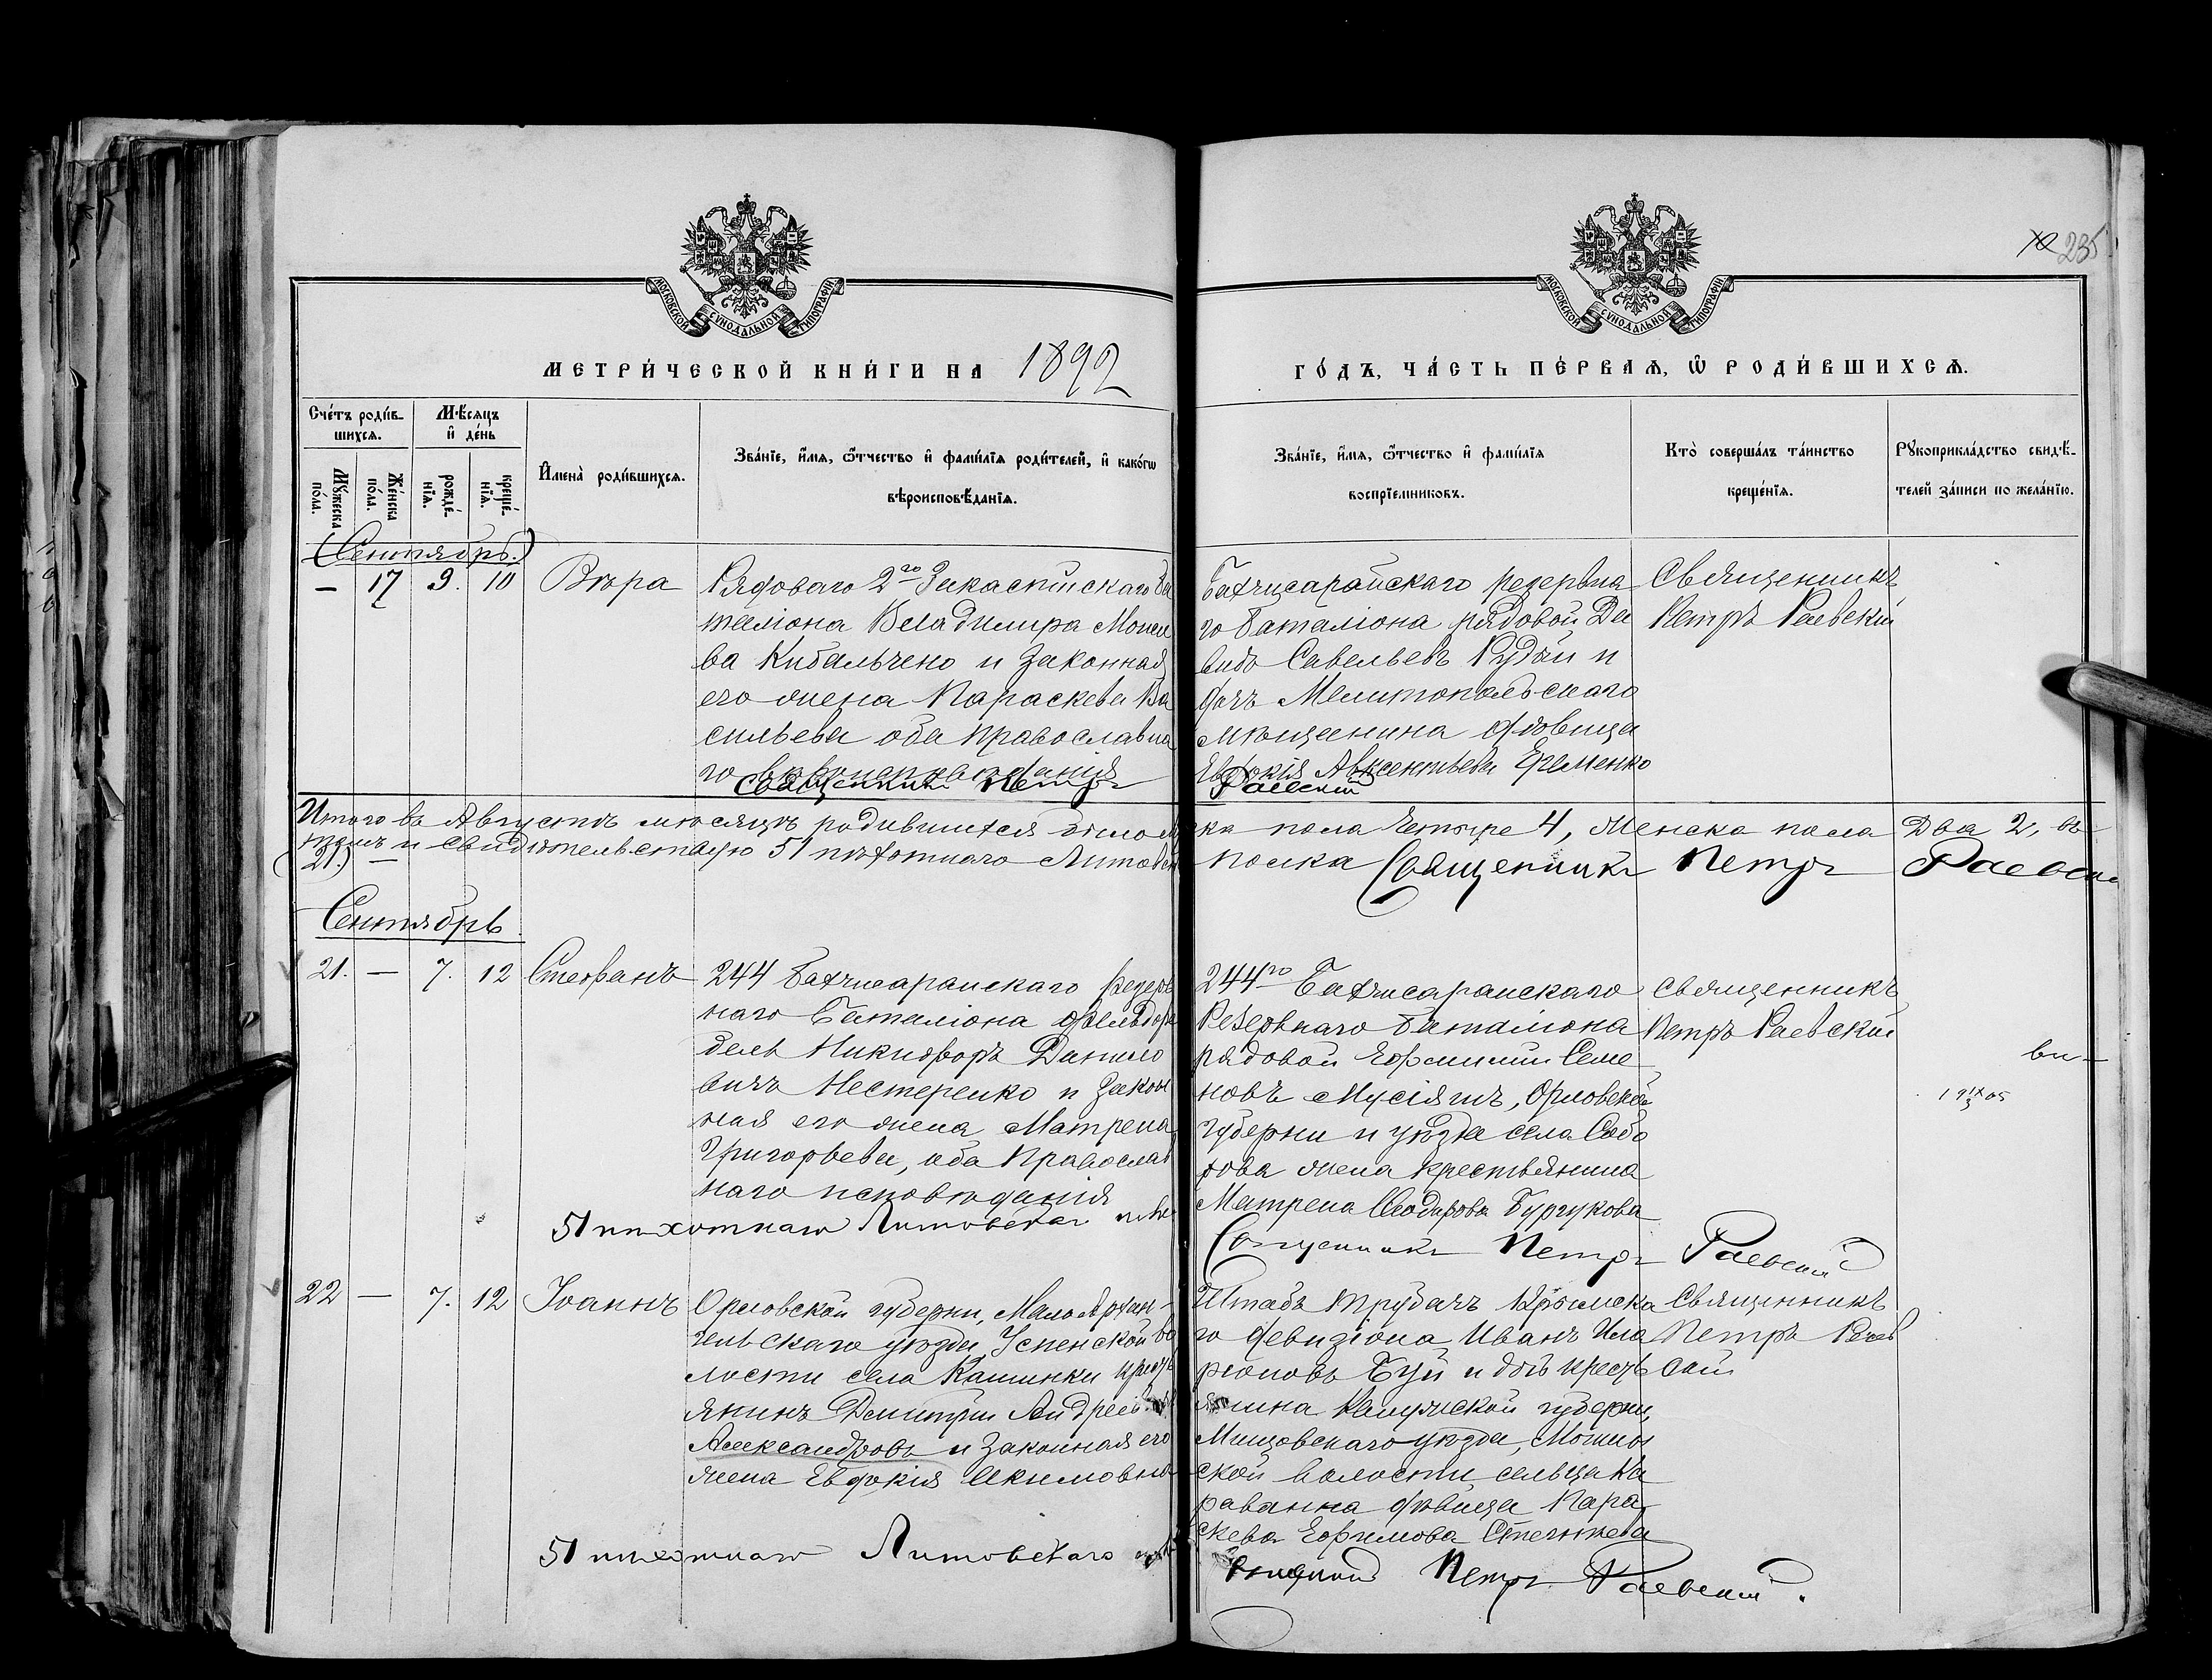 235
МОСКОВСКОЙ СУНОДАЛЬНОЙ ТИПОГРАФІИ
МОСКОВСКОЙ СУНОДАЛЬНОЙ ТИПОГРАФІИ
МЕТРИ́ЧЕСКОЙ КНИ́ГИ НА 1892
ГО́ДЪ, ЧА́СТЬ ПЕ́РВАѦ, Ѡ РОДИ́ВШИХСѦ.
Сче́тъ роди́в-
шихсѧ.
Мѣ́сѧцъ
и де́нь
Мꙋ́жеска
по́ла.
Же́нска
по́ла.
рожде́-
нїѧ.
креще́-
нїѧ.
Имена̀ роди́вшихсѧ.
Зва́нїе, и́мѧ, ѻ́тчество и фами́лїѧ роди́телей, и како́гѡ
вѣроисповѣ́данїѧ.
Зва́нїе, и́мѧ, ѻ́тчество и фами́лїѧ
воспрїемниковъ.
Кто̀ соверша́лъ та́инство
креще́нїѧ.
Рꙋкоприкла́дство свидѣ́-
телей за́писи по жела́нїю.
(Сентябрь.)
— 17 9. 10 Вѣра
Рядоваго 2го Закаспійскаго ба
таліона Владимира Моисе
ва Кибальчено и законная
его жена Параскева Ва
сильева оба православна
го вѣроисповѣданія
Священникъ Петръ
Бахчисарайскаго резервна
го баталіона рядовой Да
видъ Савельевъ Рудой и
дочь Мелитопольскаго
мѣщанина дѣвица
Евдокія Авксентьева Еременко
Раевскій
Священникъ
Петръ Раевскій
Итого въ Августѣ мѣсяцѣ родившихся было
ка пола четыре 4, женска пола два 2, въ
чемъ и свидѣтельствую 51 пѣхотнаго Литовск
полка Священникъ Петръ Раевскій
(21) —
Сентябрь.
21. — 7. 12 Стефанъ
244 Бахчисарайскаго резерв
наго Баталіона фельдфе
бель Никифоръ Данило
вичъ Нестеренко и закон
ная его жена Матрена
Григорьева, оба Православ
наго исповѣданія
51 пѣхотнаго Литовскаго полка
244го Бахчисарайскаго
Резервнаго баталіона
рядовой Ефимій Семе
новъ Мусіятъ, Орловской
губерни и уѣзда села Сабу
рова жена крестьянина
Матрена Ѳеодорова Бурукова
Священникъ Петръ Раевскій
Священникъ
Петръ Раевской
19 IX/3 05
22 — 7. 12 Іоаннъ
Орловской губерни, Мало Архан-
гельскаго уѣзда, Успенской во
лости села Каменки крест
янинъ Дмитрій Андреев
Александровъ и законная его
жена Евдокія Акимовна
51 пѣхотнаго Литовскаго
Штабъ трубачъ Крымска
го девизіона Иванъ Ила
ріоновъ Буй и дочь крест
янина Калужской губерни,
Мещовскаго уѣзда, Мошон
ской волости, сельца Ка
раванна дѣвица Пара
скева Ефимова
Петръ Раевскій.
Священникъ
Петръ Раев
скій